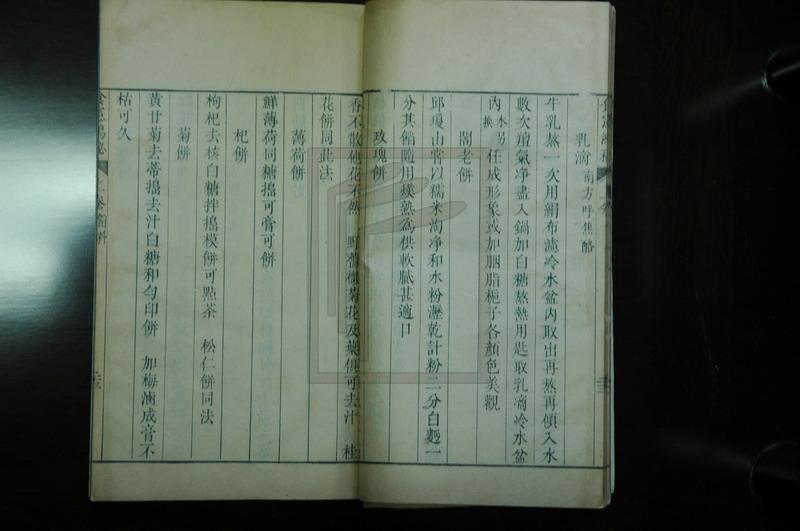 乳滴 南方呼焦酪
牛乳熬一次用絹布濾冷水盆內取出再熬再傾入水
數次羶氣淨盡入鍋加白糖熬熱用匙取乳滴冷水盆
內 水另換 任成形象或加胭脂梔子各顏色美觀
閣老餅
邱瓊山嘗以糯米淘淨和水粉瀝乾計粉二分白麵一
分其餡隨用熯熟為供軟膩甚適口
玫瑰餅
香不散他花不然 野薔薇菊花及葉俱可去汁 桂
花餅同此法
薄荷餅
鮮薄荷同糖搗可膏可餅
杞餅
枸杞去核白糖拌搗模餅可點茶 松仁餅同法
菊餅
黃甘菊去蒂搗去汁白糖和勻印餅 加梅滷成膏不
枯可久
食憲鴻祕 上卷